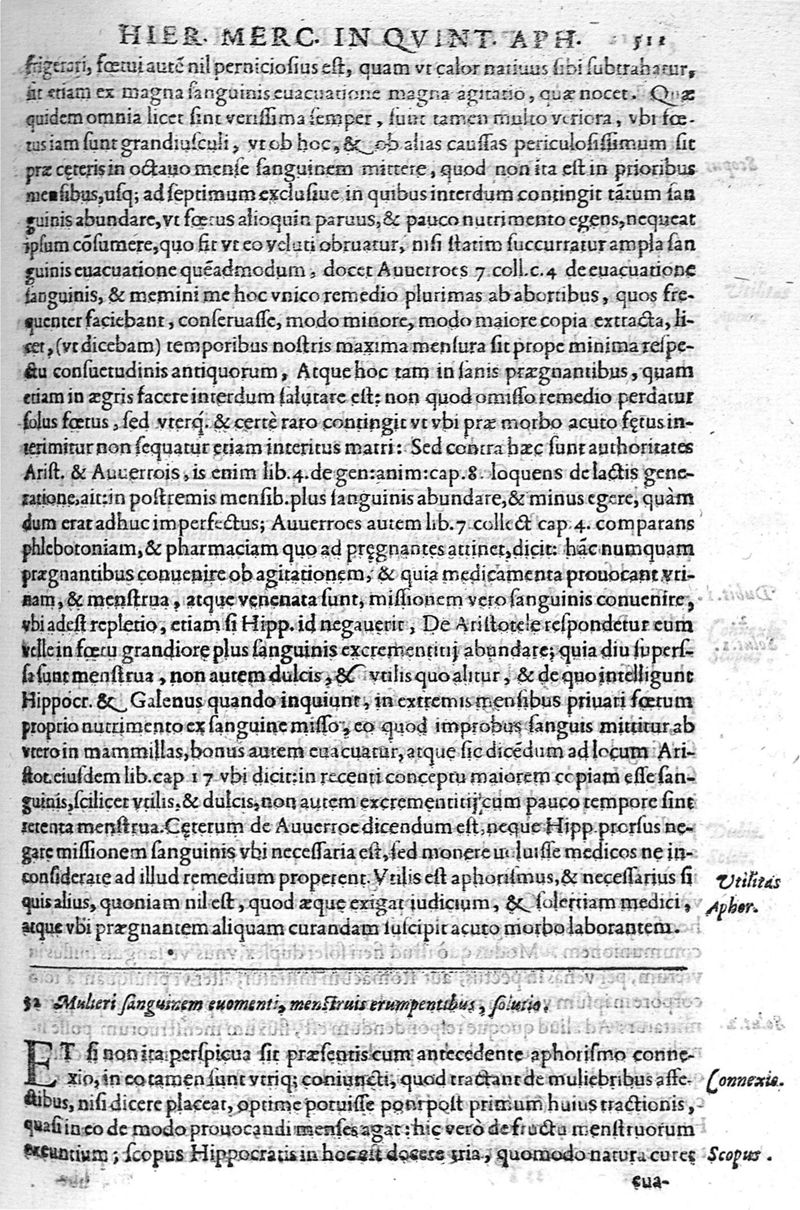 HIER. MERC. IN QVINT. APH. 511
frigerati, fœtui autē nil perniciosius est, quam vt calor natiuus sibi subtrahatur,
sit etiam ex magna sanguinis euacuatione magna agitatio, quæ nocet. Quæ
quidem omnia licet sint verissima semper, sunt tamen multo veriora, vbi fœ-
tus iam sunt grandiusculi, vt ob hoc, & ob alias caussas periculosissimum sit
præ cęteris in octauo mense sanguinem mittere, quod non ita est in prioribus
mensibus, usq; ad septimum exclusiue in quibus interdum contingit tātum san
guinis abundare, vt fœtus alioquin paruus, & pauco nutrimento egens, nequeat
ipsum cōsumere, quo fit vt eo veluti obruatur, nisi statim succurratur ampla san
guinis euacuatione quēadmodum, docet Auuerroes 7 coll. c. 4 de euacuatione
sanguinis, & memini me hoc vnico remedio plurimas ab abortibus, quos fre-
quenter faciebant, conseruasse, modo minore, modo maiore copia extracta, li-
cet, (vt dicebam) temporibus nostris maxima mensura sit prope minima respe-
ctu consuetudinis antiquorum, Atque hoc tam in sanis prægnantibus, quam
etiam in ægris facere interdum salutare est: non quod omisso remedio perdatur
solus fœtus, sed vterq. & certè raro contingit vt vbi præ morbo acuto fętus in-
terimitur non sequatur etiam interitus matri: Sed contra hæc sunt authoritates
Arist. & Auuerrois, is enim lib. 4. de gen: anim: cap. 8. loquens de lactis gene-
ratione, ait: in postremis mensib. plus sanguinis abundare, & minus egere, quàm
dum erat adhuc imperfectus; Auuerroes autem lib. 7 collect cap. 4. comparans
phlebotoniam, & pharmaciam quo ad pręgnantes attinet, dicit: hāc numquam
prægnantibus conuenire ob agitationem, & quia medicamenta prouocant vri-
nam, & menstrua, atque venenata sunt, missionem vero sanguinis conuenire,
vbi adest repletio, etiam si Hipp. id negauerit, De Aristotele respondetur eum
velle in fœtu grandiore plus sanguinis excrementitij abundare; quia diu supers-
sa sunt menstrua, non autem dulcis, & vtilis quo alitur, & de quo intelligunt
Hippocr. & Galenus quando inquiunt, in extremis mensibus priuari fœtum
proprio nutrimento ex sanguine misso, eo quod improbus sanguis mittitur ab
vtero in mammillas, bonus autem euacuatur, atque sic dicēdum ad locum Ari-
stot. eiusdem lib. cap 17 vbi dicit: in recenti conceptu maiorem copiam esse san-
guinis, scilicet vtilis, & dulcis, non autem excrementitij cum pauco tempore sint
retenta menstrua. Cęterum de Auuerroe dicendum est, neque Hipp. prorsus ne-
gare missionem sanguinis vbi necessaria est, sed monere uoluisse medicos ne in-
considerate ad illud remedium properent. Vtilis est aphorismus, & necessarius si
quis alius, quoniam nil est, quod æque exigat iudicium, & solertiam medici,
atque vbi prægnantem aliquam curandam suscipit acuto morbo laborantem.
Vtilitas
Aphor.
32 Mulieri sanguinem euomenti, menstruis erumpentibus, solutio.
ET si non ita perspicua sit præsentis cum antecedente aphorismo conne-
xio, in eo tamen sunt vtriq; coniuncti, quod tractant de muliebribus affe-
ctibus, nisi dicere placeat, optime potuisse poni post primum huius tractionis,
quasi in eo de modo prouocandi menses agat: hic verò de fructu menstruorum
exeuntium; scopus Hippocratis in hoc est docere tria, quomodo natura curet
Connexio.
Scopus.
eua-